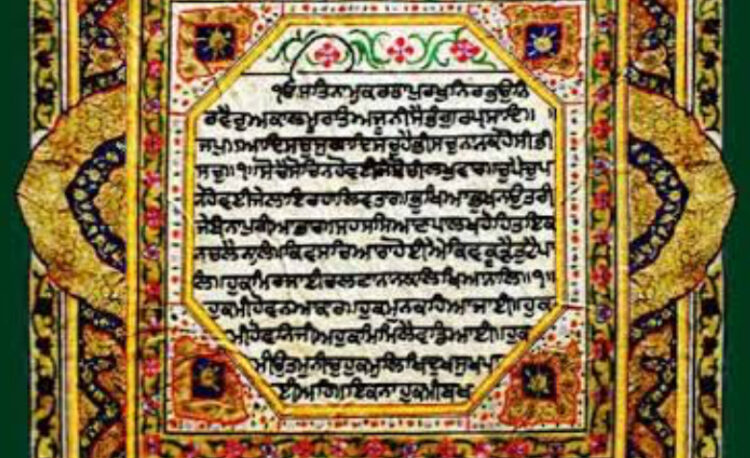 ੴਸਤਿਨਾਮੁਕਰਤਾਪੁਰਖੁਨਿਰਭਉਨਿ
ਰਵੈਰੁਅਕਾਲਮੂਰਤਿਅਜੂਨੀਸੈਭੰਗੁਰਪ੍ਰਸਾਦਿ॥
ਜਪੁ॥ਆਦਿਸਚੁਜੁਗਾਦਿਸਚੁਹੈਭੀਸਚੁਨਾਨਕਹੋਸੀਭੀ
ਸਚੁ॥੧॥ਸੋਚੈਸੋਚਿਨਹੋਵਈਜੇਸੋਚੀਲਖਵਾਰ॥ਚੁਪੈਚੁਪ
ਨਹੋਵਈਜੇਲਾਇਰਹਾਲਿਵਤਾਰ॥ਭੁਖਿਆਭੁਖਨਉਤਰੀ
ਜੇਬੰਨਾਪੁਰੀਆਭਾਰ॥ਸਹਸਸਿਆਣਪਾਲਖਹੋਹਿਤਇਕ
ਨਚਲੈਨਾਲਿ॥ਕਿਵਸਚਿਆਰਾਹੋਈਐਕਿਵਕੂੜੈਤੁਟੈਪਾ
ਲਿ॥ਹੁਕਮਿਰਜਾਈਚਲਣਾਨਾਨਕਲਿਖਿਆਨਾਲਿ॥੧॥
ਹੁਕਮੀਹੋਵਨਿਆਕਾਰਹੁਕਮੁਨਕਹਿਆਜਾਈ॥ਹੁਕ
ਮੀਹੋਵਨਿਜੀਅਹੁਕਮਿਮਿਲੈਵਡਿਆਈ॥ਹੁਕ
ਮੀਉਤਮੁਨੀਚੁਹੁਕਮਿਲਿਖਿਦੁਖਸੁਖਪਾ
ਈਅਹਿ॥ਇਕਨਾਹੁਕਮੀਬਖ